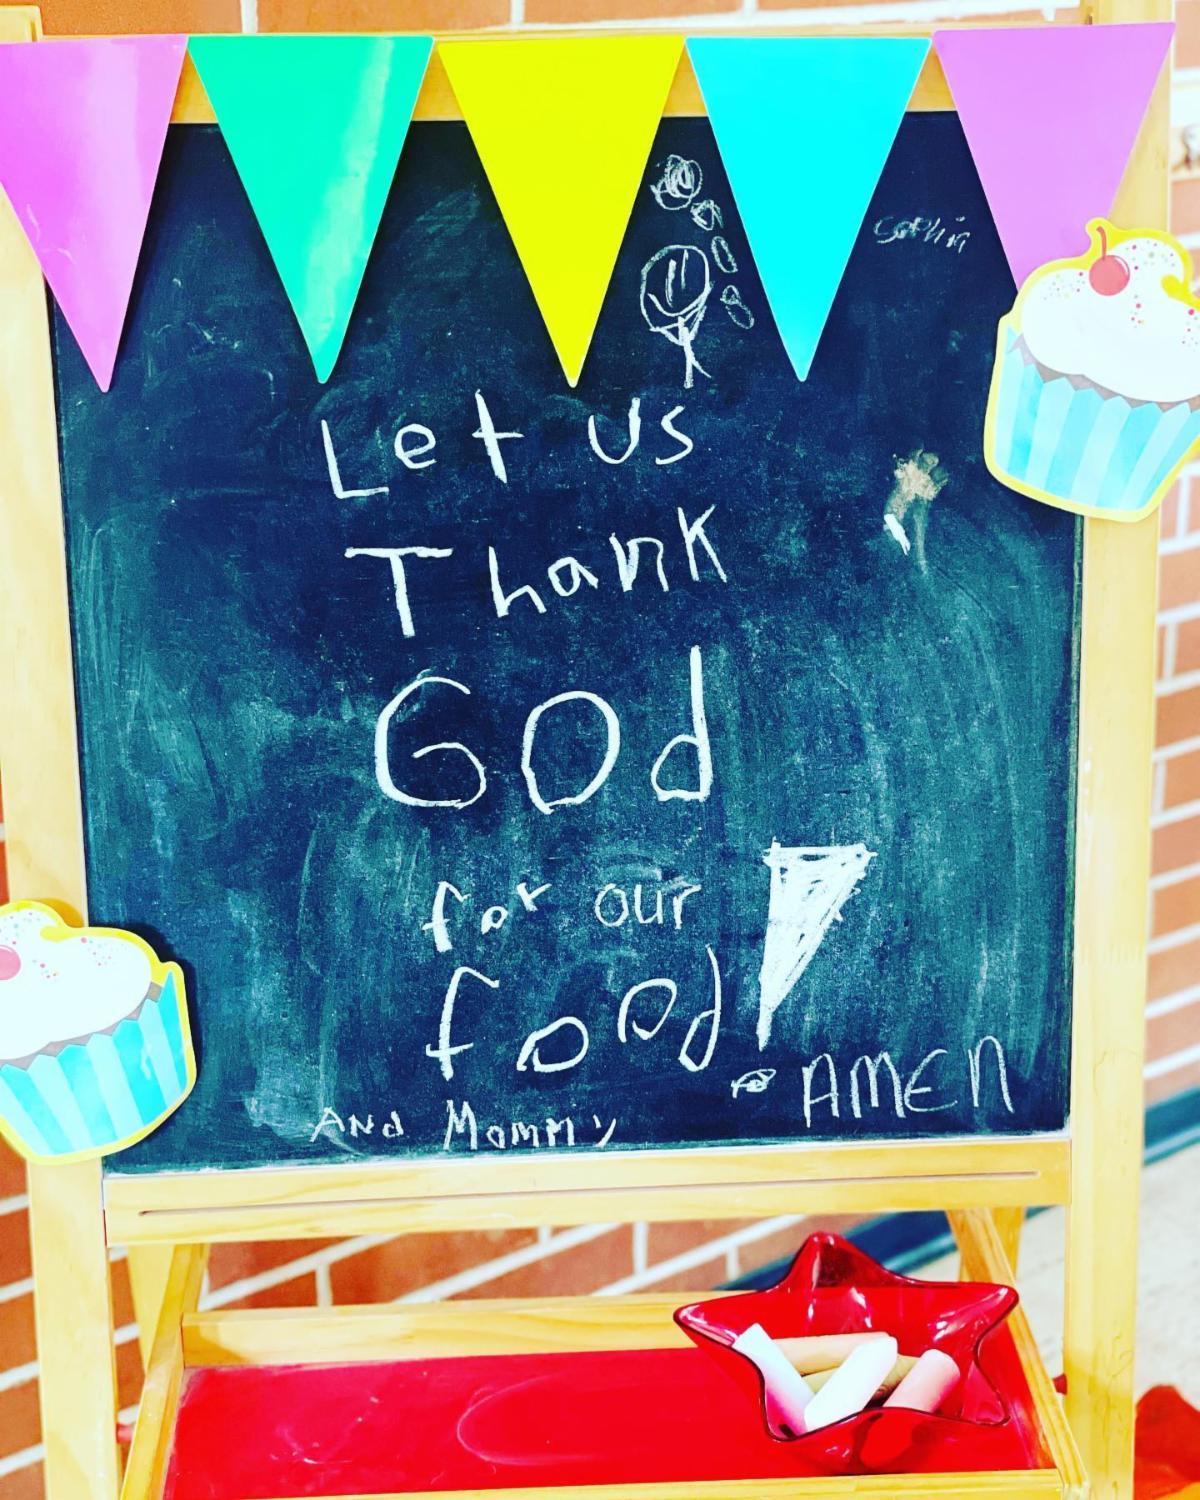 Let us
Thank
God
for our
food
AMEN
And Mommy